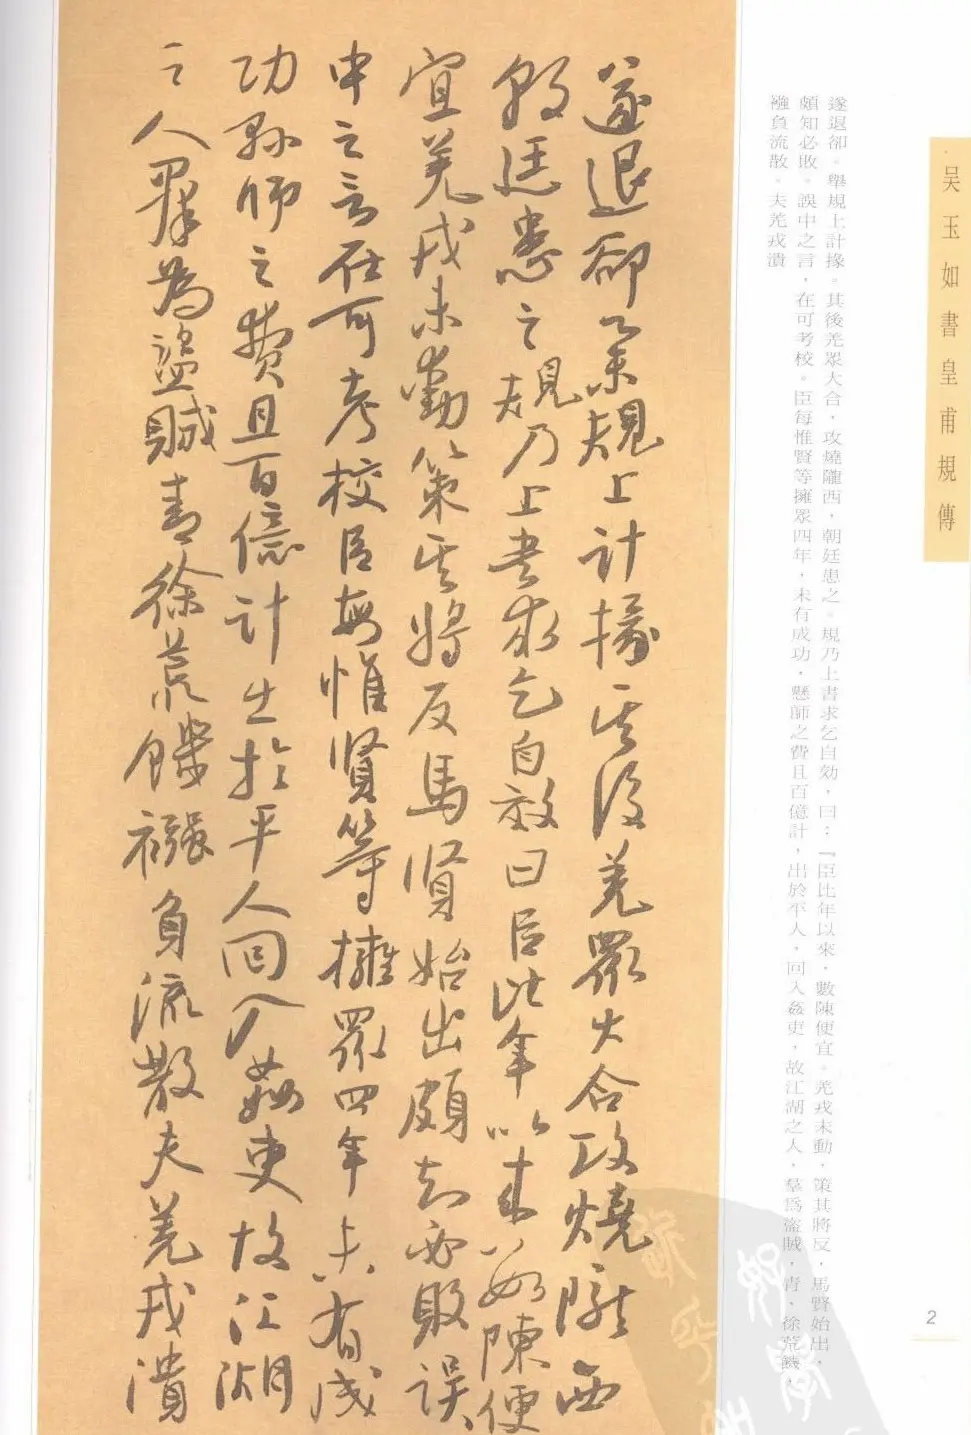 吴玉如書皇甫規傳
2
遂退卻。舉規上計掾。其後羌眾大合，攻燒隴西，朝廷患之。規乃上書求乞自効，曰：『臣比年以來，數陳便宜。羌戎未動，策其將反，馬賢始出，
頗知必敗。誤中之言，在可考校。臣每惟賢等擁眾四年，未有成功，懸師之費且百億計，出於平人，回入姦吏，故江湖之人，羣爲盜賊，青、徐荒饑，
襁負流散。夫羌戎潰
遂退卻舉規上計掾其後羌眾大合攻燒隴西
朝廷患之規乃上書求乞自效曰臣比年以來數陳便
宜羌戎未動策其將反馬賢始出頗知必敗誤
中之言在可考校臣每惟賢等擁眾四年未有成
功懸師之費且百億計出於平人回入姦吏故江湖
之人羣為盜賊青徐荒饑襁負流散夫羌戎潰